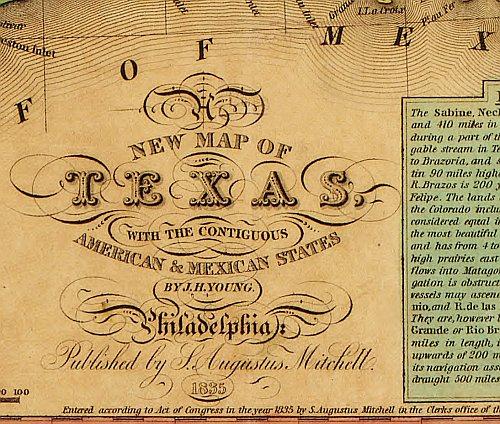 Grand
I. La Croix
Pt. au Fer
Inlet
F OF MEX
A
NEW MAP OF
TEXAS,
WITH THE CONTIGUOUS
AMERICAN & MEXICAN STATES
BY J.H. YOUNG.
Philadelphia:
Published by S. Augustus Mitchell.
1835
100
Entered according to Act of Congress in the year 1835 by S. Augustus Mitchell in the Clerks office of th
The Sabine, Nech
and 410 miles in
during a part of th
gable stream in Te
to Brazoria, and s
tin 90 miles highe
R. Brazos is 200 y
Felipe. The lands
the Colorado inclu
considered eqtal in
the most beautiful
and has from 4 to
high prairies east
flows into Matago
gation is obstruct
vessels may ascend
nio, and R. de las
They are, however
Grande or Rio Br
miles in length, i
upwards of 200 m
its navigation ass
draught 500 miles